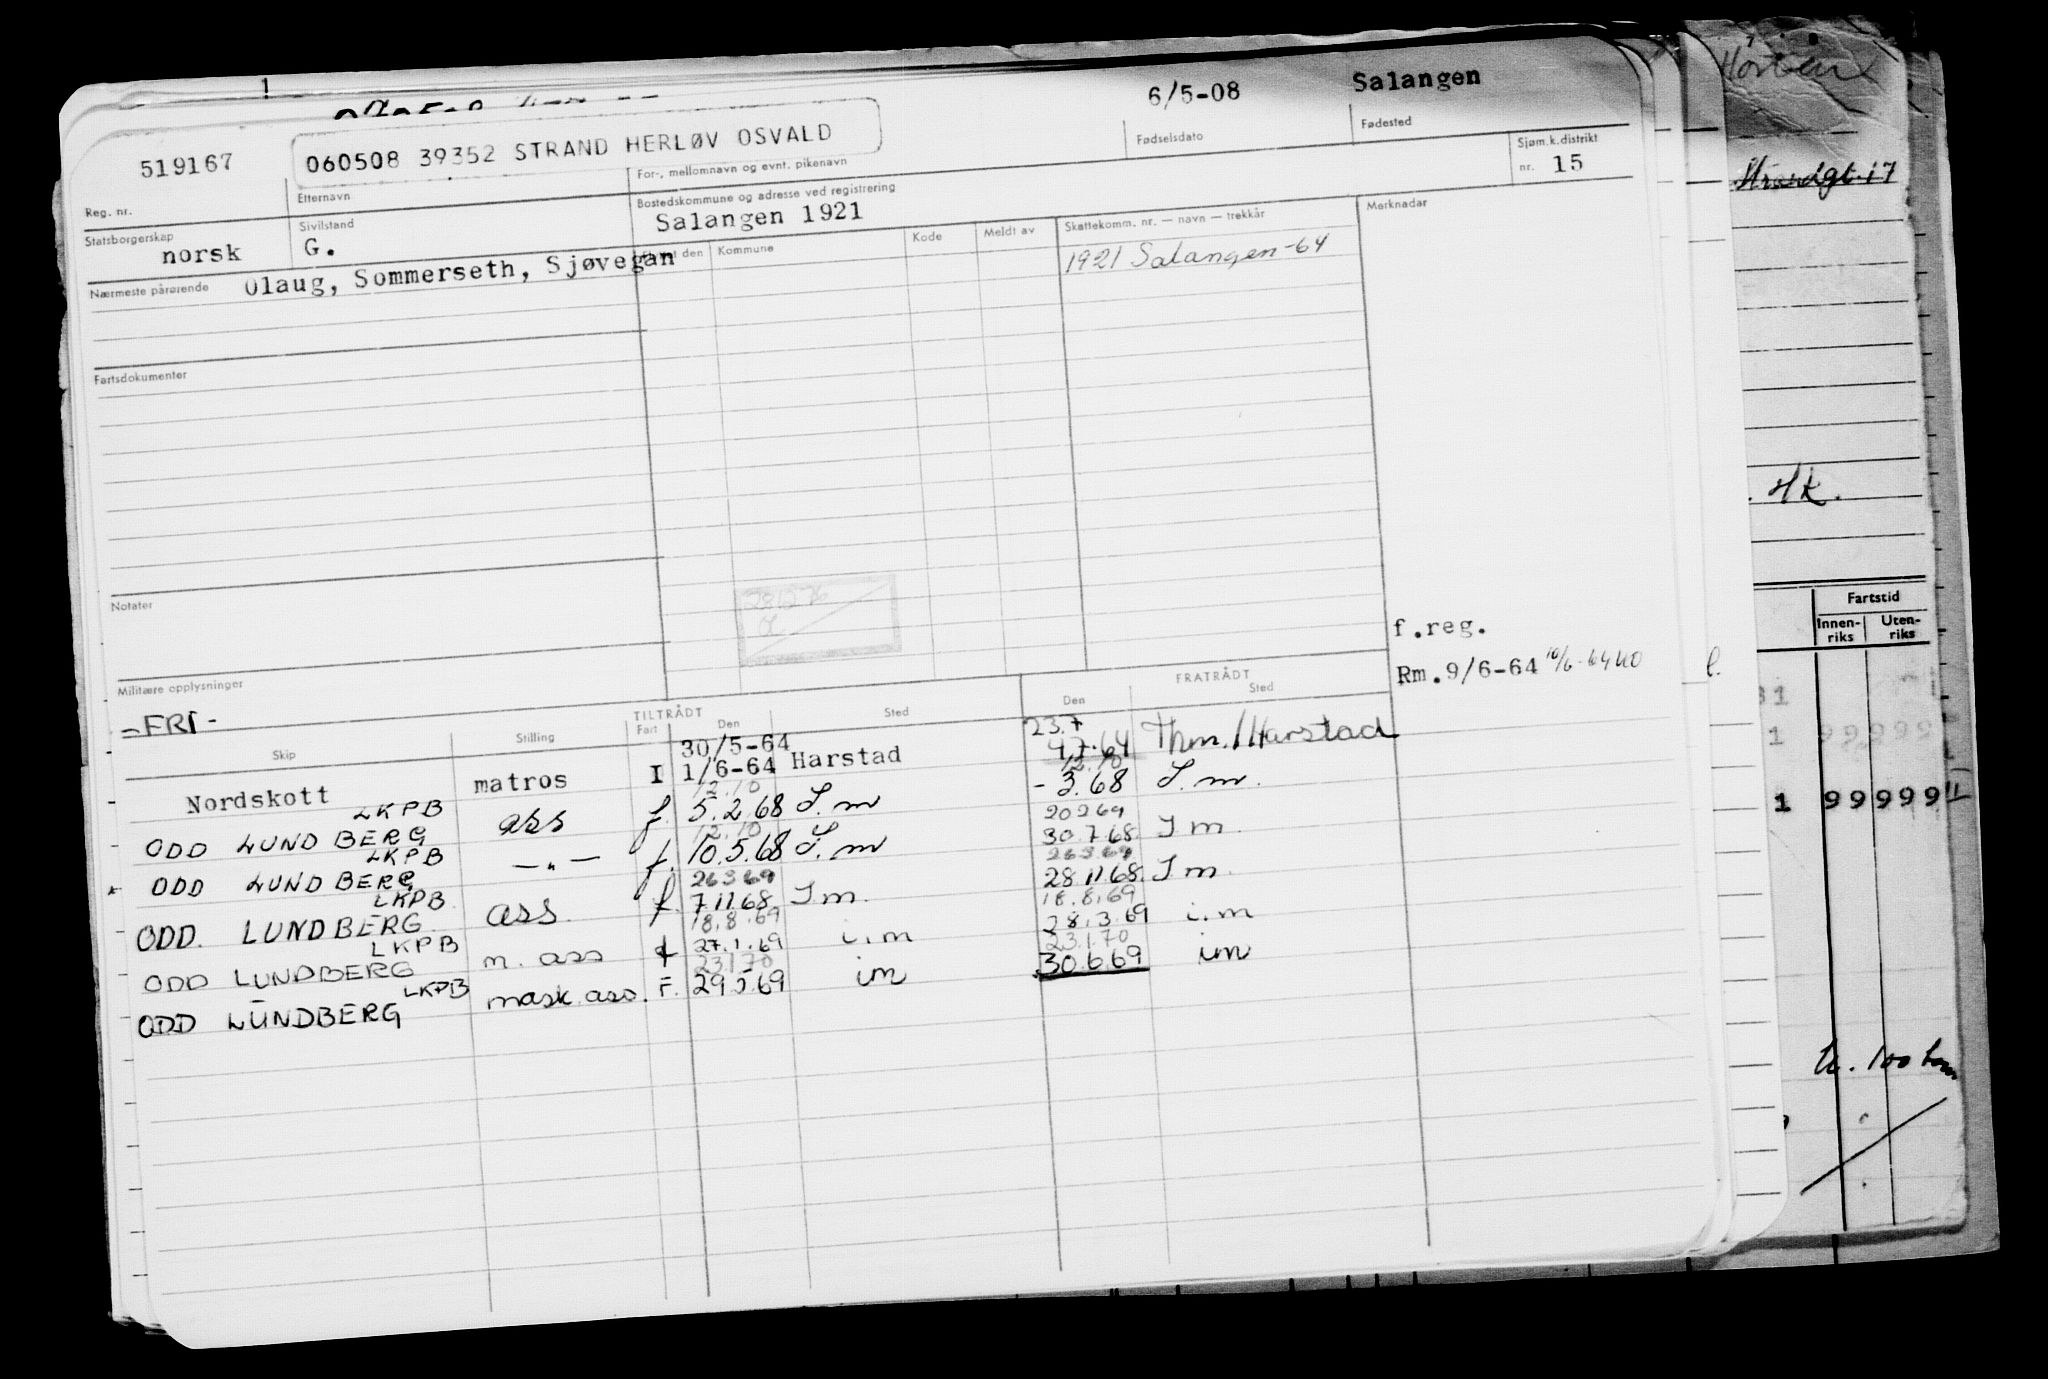 6/5-08 Salangen
519167 060508 39352 STRAND HERLØV OSVALD
Fødselsdato Fødested
Reg. nr. Etternavn For-, mellomnavn og evnt. pikenavn
Sjøm.k.distrikt
nr. 15
Statsborgerskap Sivilstand Bostedskommune og adresse ved registrering
norsk G. Salangen 1921
Nærmeste pårørende Olaug, Sommerseth, Sjøvegan
Kommune Kode Meldt av Skattekomm. nr. — navn — trekkår Merknader
1921 Salangen-64
Fartsdokumenter
Notater
f.reg.
Rm.9/6-64 10/6-64
Militære opplysninger
-FRI-
TILTRÅDT FRATRÅDT
Skip Stilling Fart Den Sted Den Sted
30/5-64 23.7
Nordskott matros I 1/6-64 Harstad Harstad
12.10 12.10
LKPB
ODD LUNDBERG ass f. 5.2.68 I.m - 3.68 I.m.
12.10 20269
LKPB
ODD LUNDBERG —"— f. 10.5.68 I.m 30.7.68. I m.
26369 26369
LKPB
ODD. LUNDBERG ass. f. 7.11.68 I m. 28.11.68. I m.
18.8.69 18.8.69
LKPB
ODD LUNDBERG m. ass f 27.1.69 i.m 28.3.69 i.m
23.1.70 23.1.70
LKPB
ODD LUNDBERG mask.ass. F. 29.5.69 im 30.6.69 im
Strandgt. 17
Fartstid
Innen-riks Uten-riks
1 99999
1 99999